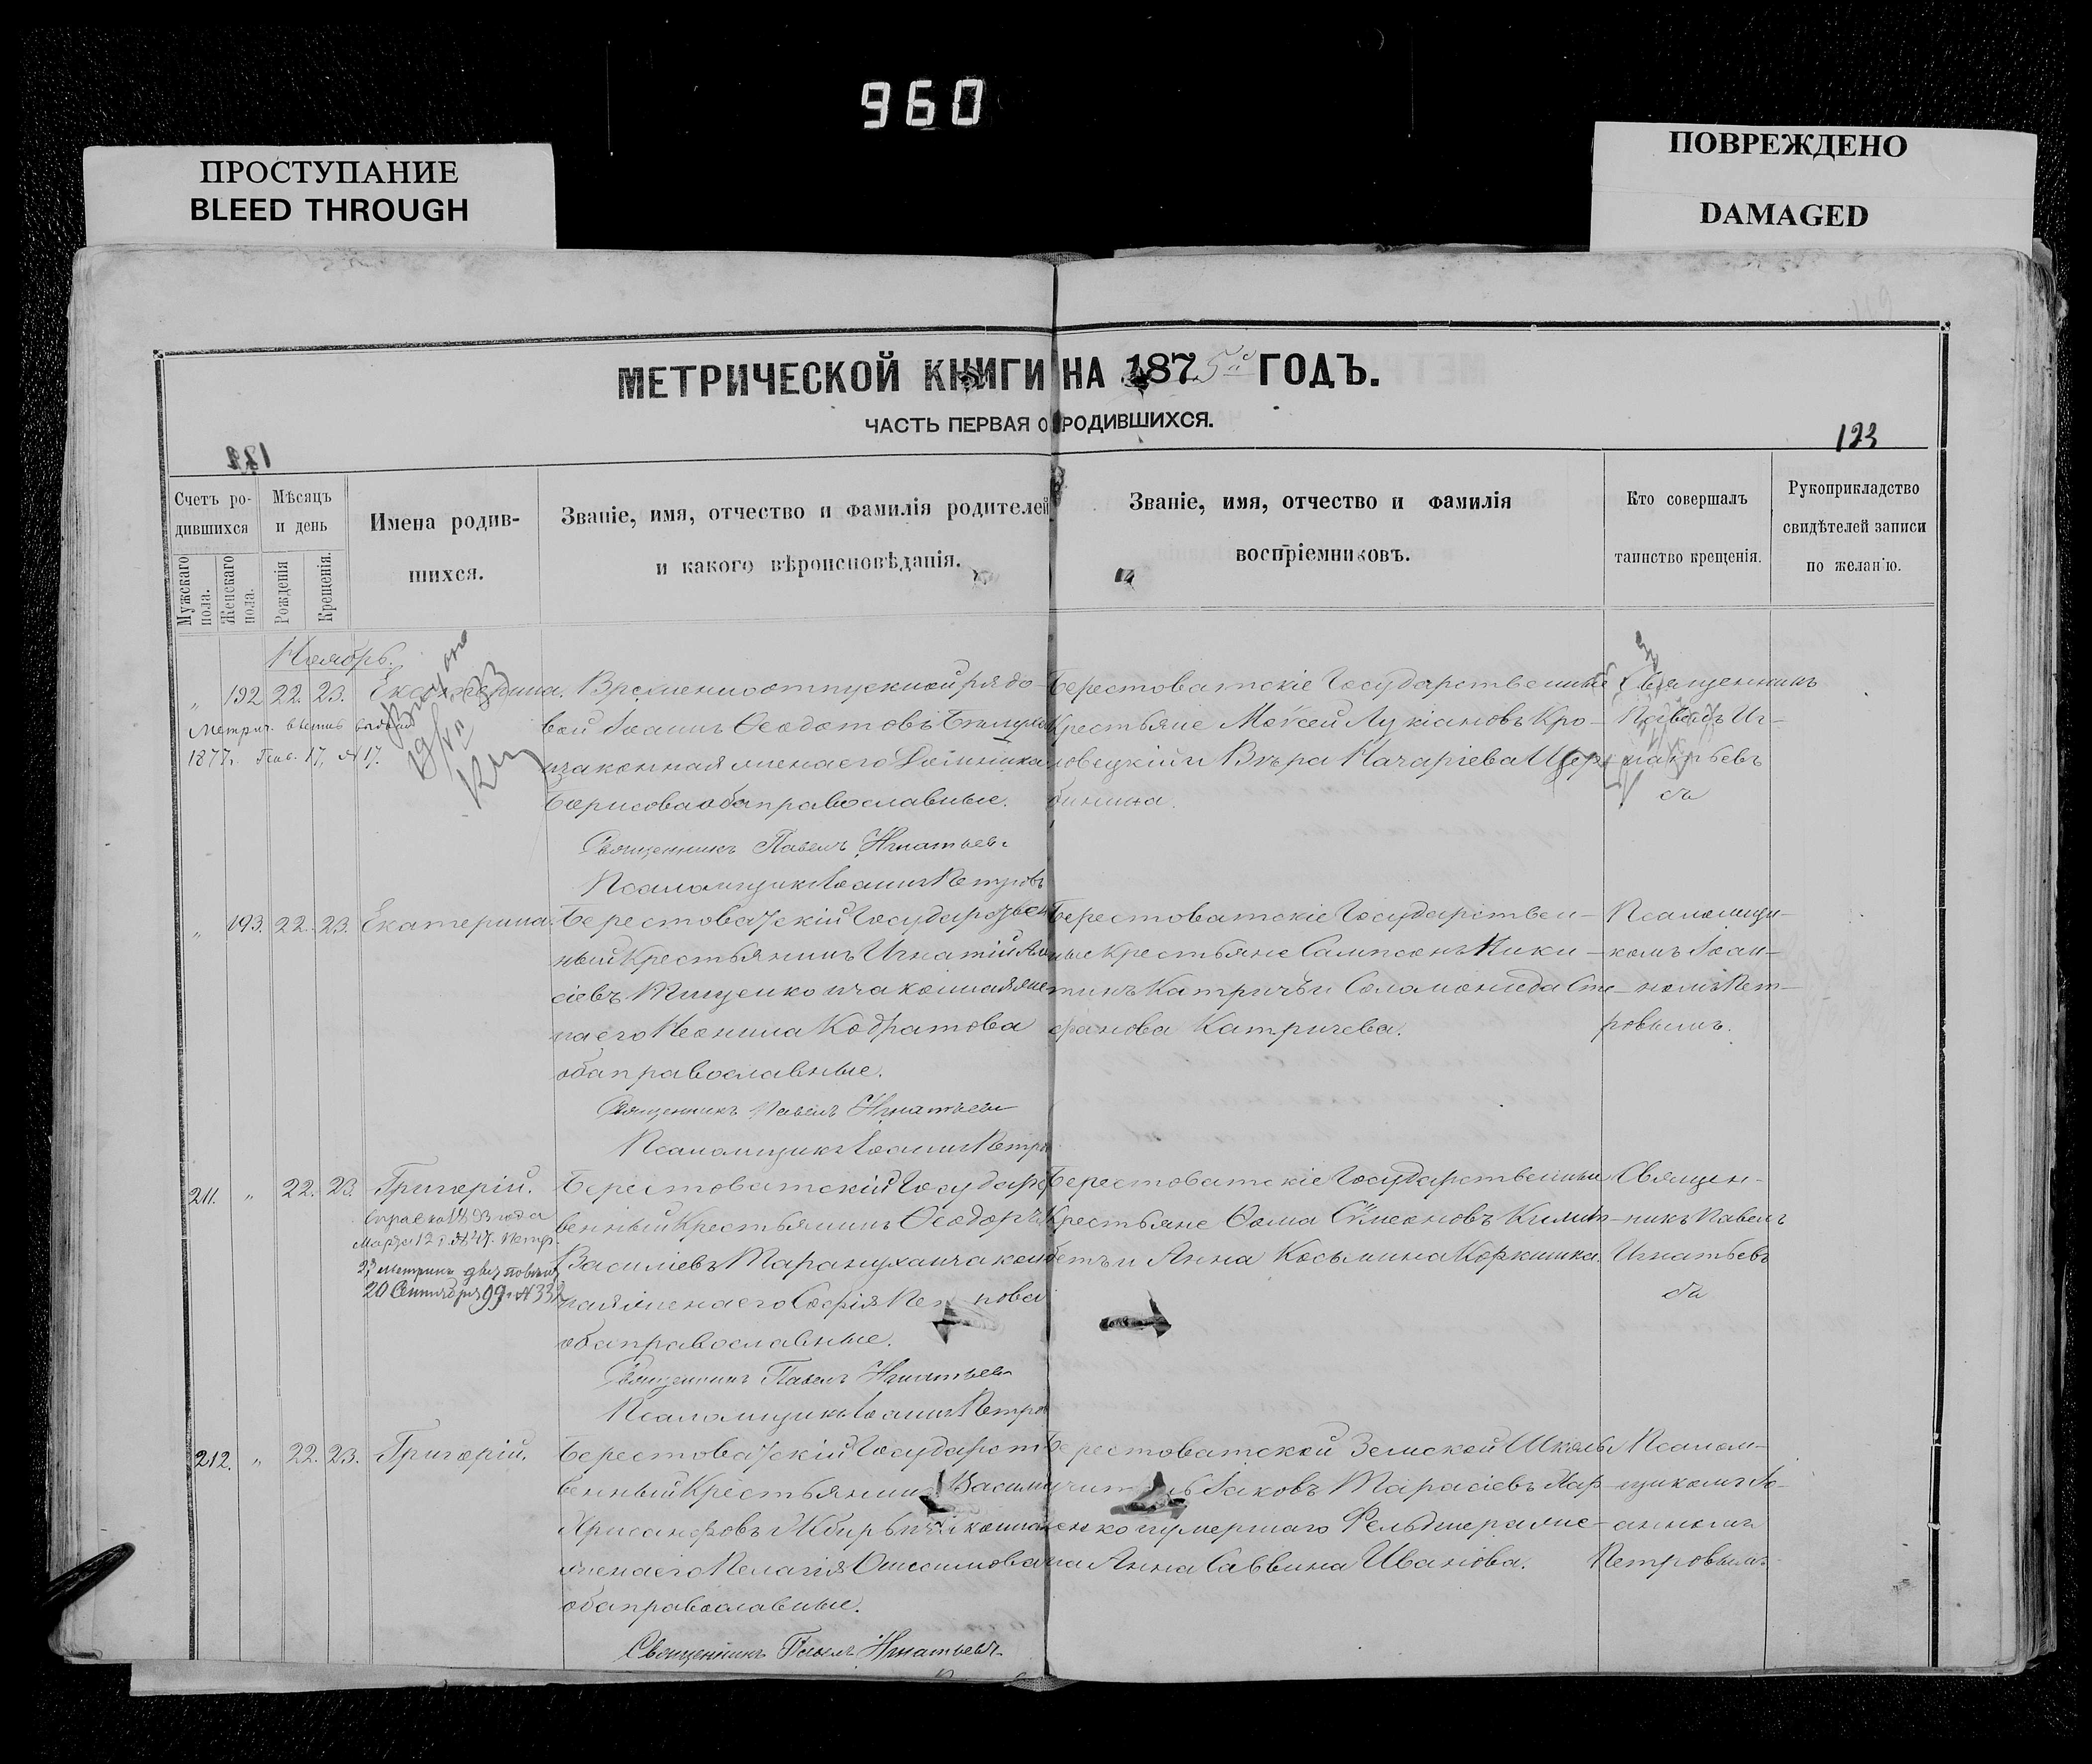 960
ПРОСТУПАНИЕ
BLEED THROUGH
ПОВРЕЖДЕНО
DAMAGED
МЕТРИЧЕСКОЙ КНИГИ НА 1875й ГОДЪ.
ЧАСТЬ ПЕРВАЯ О РОДИВШИХСЯ.
123
Счетъ ро-
дившихся
Мужскаго пола.
Женскаго пола.
Мѣсяцъ
и день
Рожденія
Крещенія.
Имена родив-
шихся.
Званіе, имя, отчество и фамилія родителей
и какого вѣроисповѣданія.
Званіе, имя, отчество и фамилія
воспріемниковъ.
Кто совершалъ
таинство крещенія.
Рукоприкладство
свидѣтелей записи
по желанію.
Ноябрь.
„ 192 22. 23. Екатерина.
1877. Генв. 17, №17.
Временноотпускной рядо-
вой Іоаннъ Ѳеодотовъ
и законная жена его Домника
Борисова оба православные.
Священникъ Павелъ Игнатьевъ
Псаломщикъ Іоаннъ Петровъ
Берестоватскіе Государственные
Крестьяне Моѵсей Лукіановъ Кро-
повецкій и Вѣра Макаріева Щер-
бинина.
Священникъ
Павелъ Иг-
натьевъ
„ 193. 22. 23. Екатерина.
Берестоватскій Государствен
ный Крестьянинъ Игнатій
сіевъ Тищенко и законная же
на его Неонила Кодратова
оба православные.
Священникъ Павелъ Игнатьевъ
Псаломщикъ Іоаннъ Петро
Берестоватскіе Государствен-
ные Крестьяне Сампсонъ Ники-
тинъ Катричъ и Соломонида Сте-
фанова Катричева.
Псаломщи-
комъ Іоан-
номъ Пет-
ровымъ.
211. „ 22. 23. Григорій.
Справка 1893 года
Марта 12 г. №47.
20 Сентября 99 г. №
Берестоватскій Государс
венный Крестьянинъ Ѳеодоръ
Василіевъ Тарануха и закон
ная жена его Софія
оба православные.
Священникъ Павелъ Игнатьевъ
Псаломщикъ Іоаннъ Петров
Берестоватскіе Государственные
Крестьяне Ѳома Сѵмеоновъ
и Анна Косьмина Коркишка.
Священ-
никъ Павелъ
Игнатьевъ
212. „ 22. 23. Григорій.
Берестоватскій Государст
венный Крестьянинъ Васили
Хрисанфовъ
жена его Пелагія Онисимова
оба православные.
Священникъ Павелъ Игнатьевъ
Берестоватской Земской Школы
учитель Іаковъ Тарасіевъ Хар-
ченко и умершаго Фельдшера же-
на Анна Саввина Иванова.
Псалом-
щикомъ Іо-
анномъ
Петровымъ